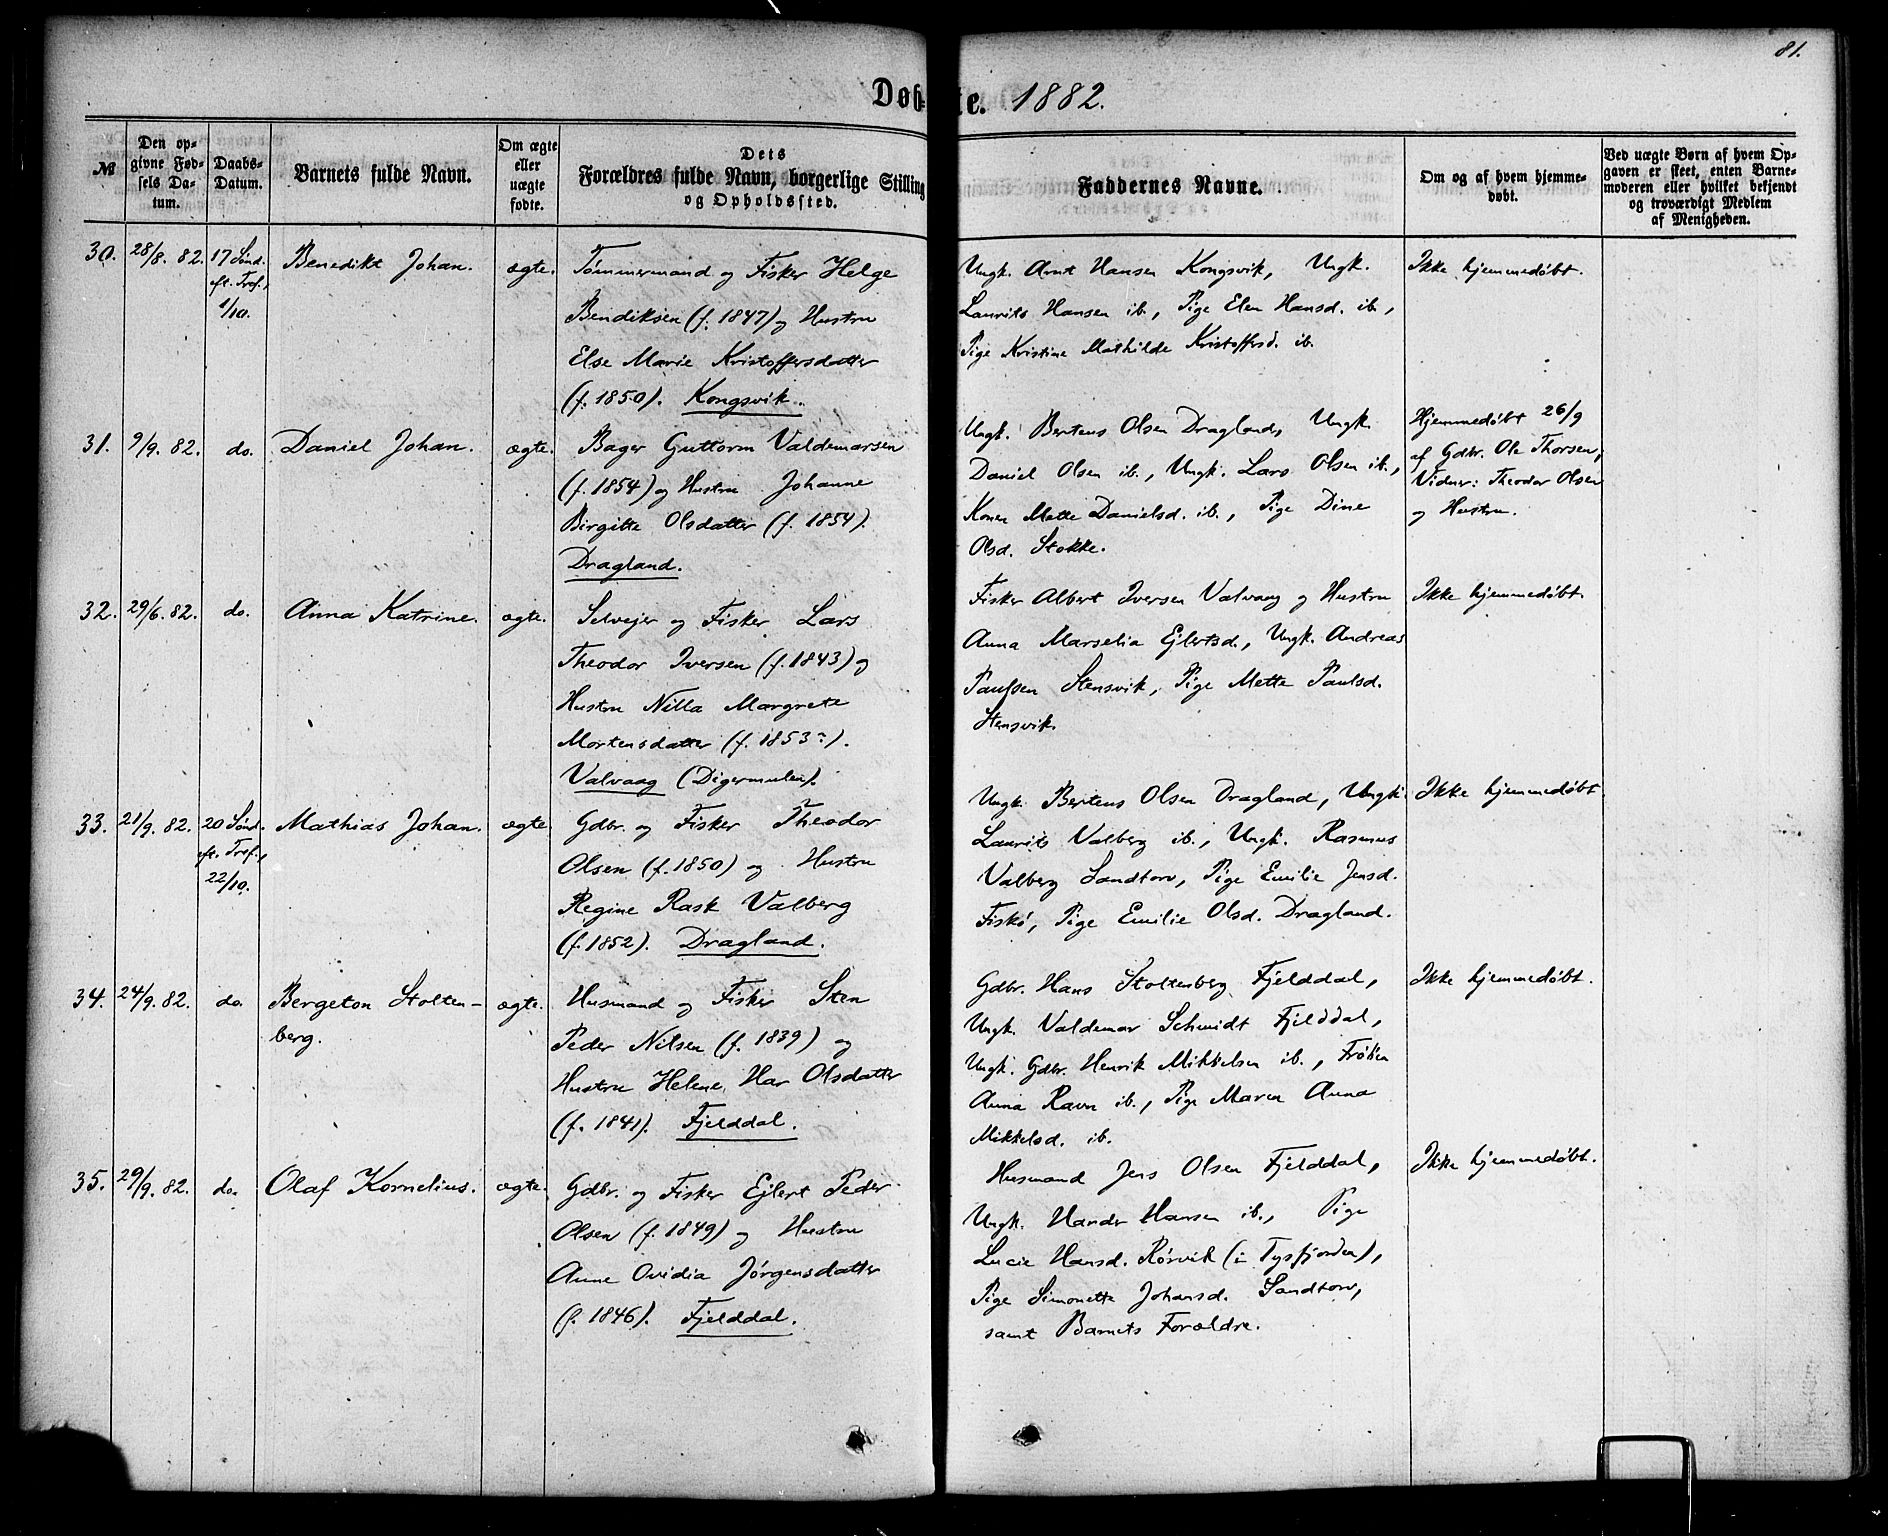 81.
Døbte. 1882.
№
Den opgivne Fødsels Datum.
Daabs-Datum.
Barnets fulde Navn.
Om ægte eller uægte fødte.
Dets Forældres fulde Navn, borgerlige Stilling og Opholdssted.
Faddernes Navne.
Om og af hvem hjemmedøbt.
Ved uægte Børn af hvem Opgaven er skeet, enten Barnemoderen eller hvilket bekjendt og troværdigt Medlem af Menigheden.
30.
28/8. 82.
17 Sønd.
eft. Tref.,
1/10.
Benedikt Johan.
ægte.
Tømmermand og Fisker Helge
Bendiksen (f. 1847) og Hustru
Else Marie Kristoffersdatter
(f. 1850). Kongsvik.
Ungk. Arnt Hansen Kongsvik, Ungk.
Laurits Hansen ib., Pige Elen Hansd. ib.,
Pige Kristine Mathilde Kristoffersd. ib.
Ikke hjemmedøbt.
31.
9/9. 82.
do.
Daniel Johan.
ægte.
Bager Guttorm Valdemarsen
(f. 1854) og Hustru Johanne
Birgitte Olsdatter (f. 1854).
Dragland.
Ungk. Bertens Olsen Dragland, Ungk.
Daniel Olsen ib., Ungk. Lars Olsen ib.,
Konen Mette Danielsd. ib., Pige Dine
Olsd. Stokke.
Hjemmedøbt 26/9
af Gdbr. Ole Thorsen;
Vidner: Theodor Olsen
og Hustru.
32.
29/6. 82.
do.
Anna Katrine.
ægte.
Selvejer og Fisker Lars
Theodor Iversen (f. 1843) og
Hustru Nilla Margrete
Mortensdatter (f. 1853?).
Valvaag (Digermulen).
Fisker Albert Iversen Valvaag og Hustru
Anna Marselia Ejlertsd., Ungk. Andreas
Paulsen Stensvik, Pige Mette Paulsd.
Stensvik.
Ikke hjemmedøbt.
33.
21/9. 82.
20 Sønd.
eft. Tref.,
22/10.
Mathias Johan.
ægte
Gdbr. og Fisker Theodor
Olsen (f. 1850) og Hustru
Regine Rask Valberg
(f. 1852). Dragland.
Ungk. Bertens Olsen Dragland, Ungk.
Laurits Valberg ib., Ungk. Rasmus
Valberg Sandtorv, Pige Emilie Jensd.
Fiskø, Pige Emilie Olsd. Dragland.
Ikke hjemmedøbt.
34.
24/9. 82.
do.
Bergeton Stolten-
berg.
ægte.
Husmand og Fisker Sten
Peder Nilsen (f. 1839) og
Hustru Helene Olsdatter
(f. 1841). Fjelddal.
Gdbr. Hans Stoltenberg Fjelddal,
Ungk. Valdemar Schmidt Fjelddal,
Ungk. Gdbr. Henrik Mikkelsen ib., Frøken
Anna Ravn ib., Pige Maren Anna
Mikkelsd. ib.
Ikke hjemmedøbt.
35.
29/9. 82.
do.
Olaf Kornelius.
ægte.
Gdbr. og Fisker Ejlert Peder
Olsen (f. 1849) og Hustru
Anne Ovidia Jørgensdatter
(f. 1846). Fjelddal.
Husmand Jens Olsen Fjelddal,
Ungk. Hansen ib., Pige
Lucie Hansd. Rørvik (i Tysfjorden),
Pige Simonette Johansd. Sandtorv,
samt Barnets Forældre.
Ikke hjemmedøbt.